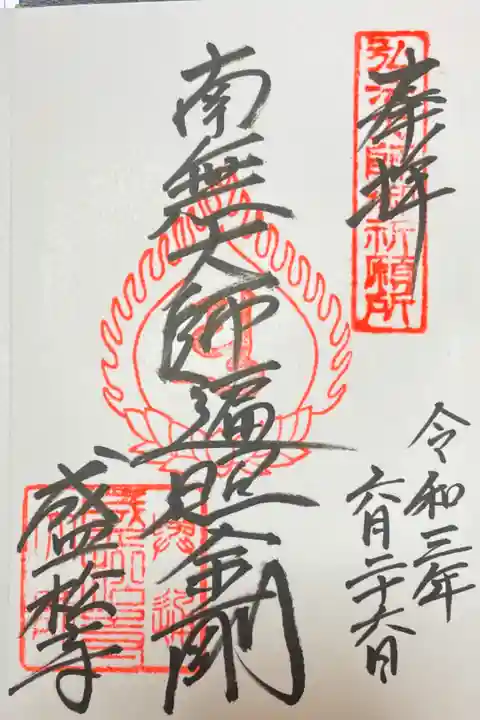 奉拝
弘法大師御祈願所
令和三年
六月二十六日
南無大師遍照金剛
盛松寺